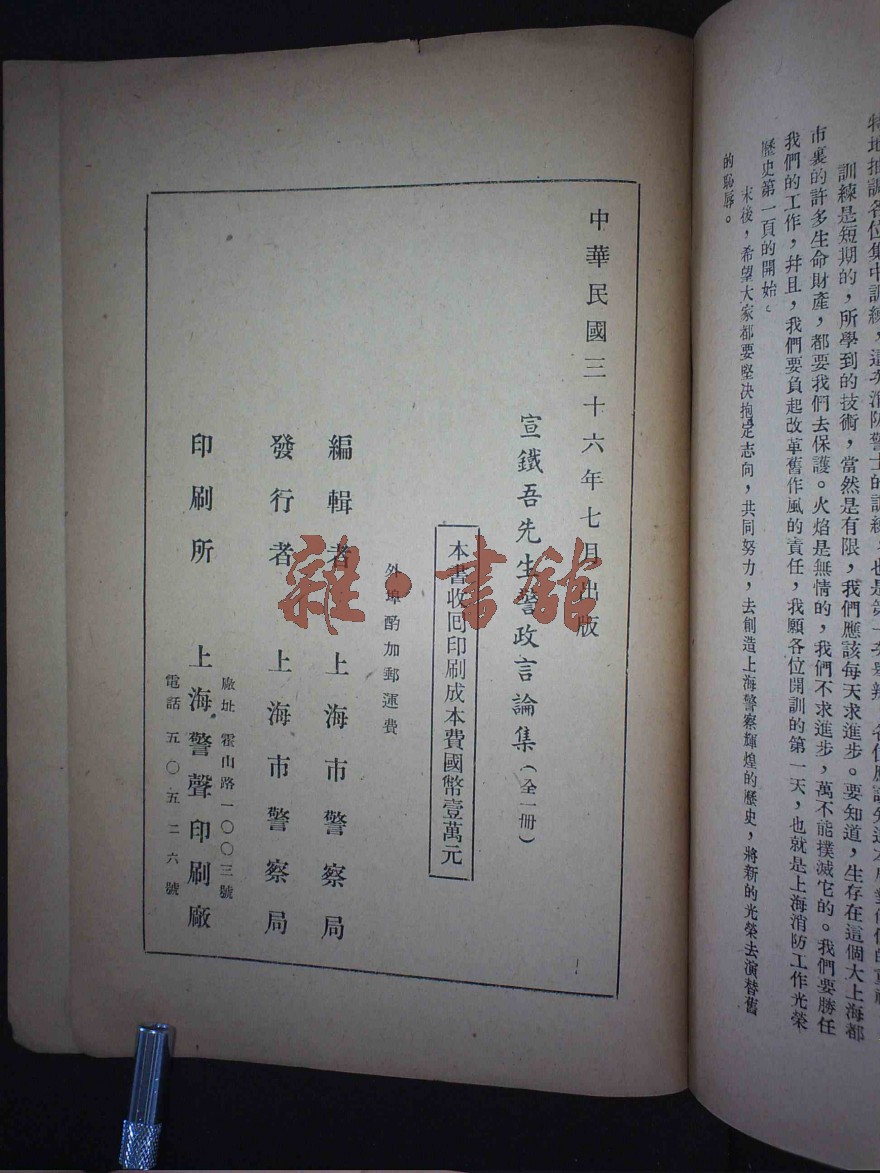 訓練是短期的，所學到的技術，當然是有限，我們應該每天求進步。要知道，生存在這個大上海都
市裏的許多生命財產，都要我們去保護。火焰是無情的，我們不求進步，萬不能撲滅它的。我們要勝任
我們的工作，幷且，我們要負起改革舊作風的責任，我願各位開訓的第一天，也就是上海消防工作光榮
歷史第一頁的開始。
末後，希望大家都要堅决抱定志向，共同努力，去創造上海警察輝煌的歷史，將新的光榮去演替舊
的恥辱。
中華民國三十六年七月出版
宣鐵吾先生警政言論集（全一册）
本書收囘印刷成本費國幣壹萬元
外埠酌加郵運費
編輯者 上海市警察局
發行者 上海市警察局
印刷所 上海警聲印刷廠
廠址 霍山路一〇〇三號
電話 五〇五二六號
雜·書館